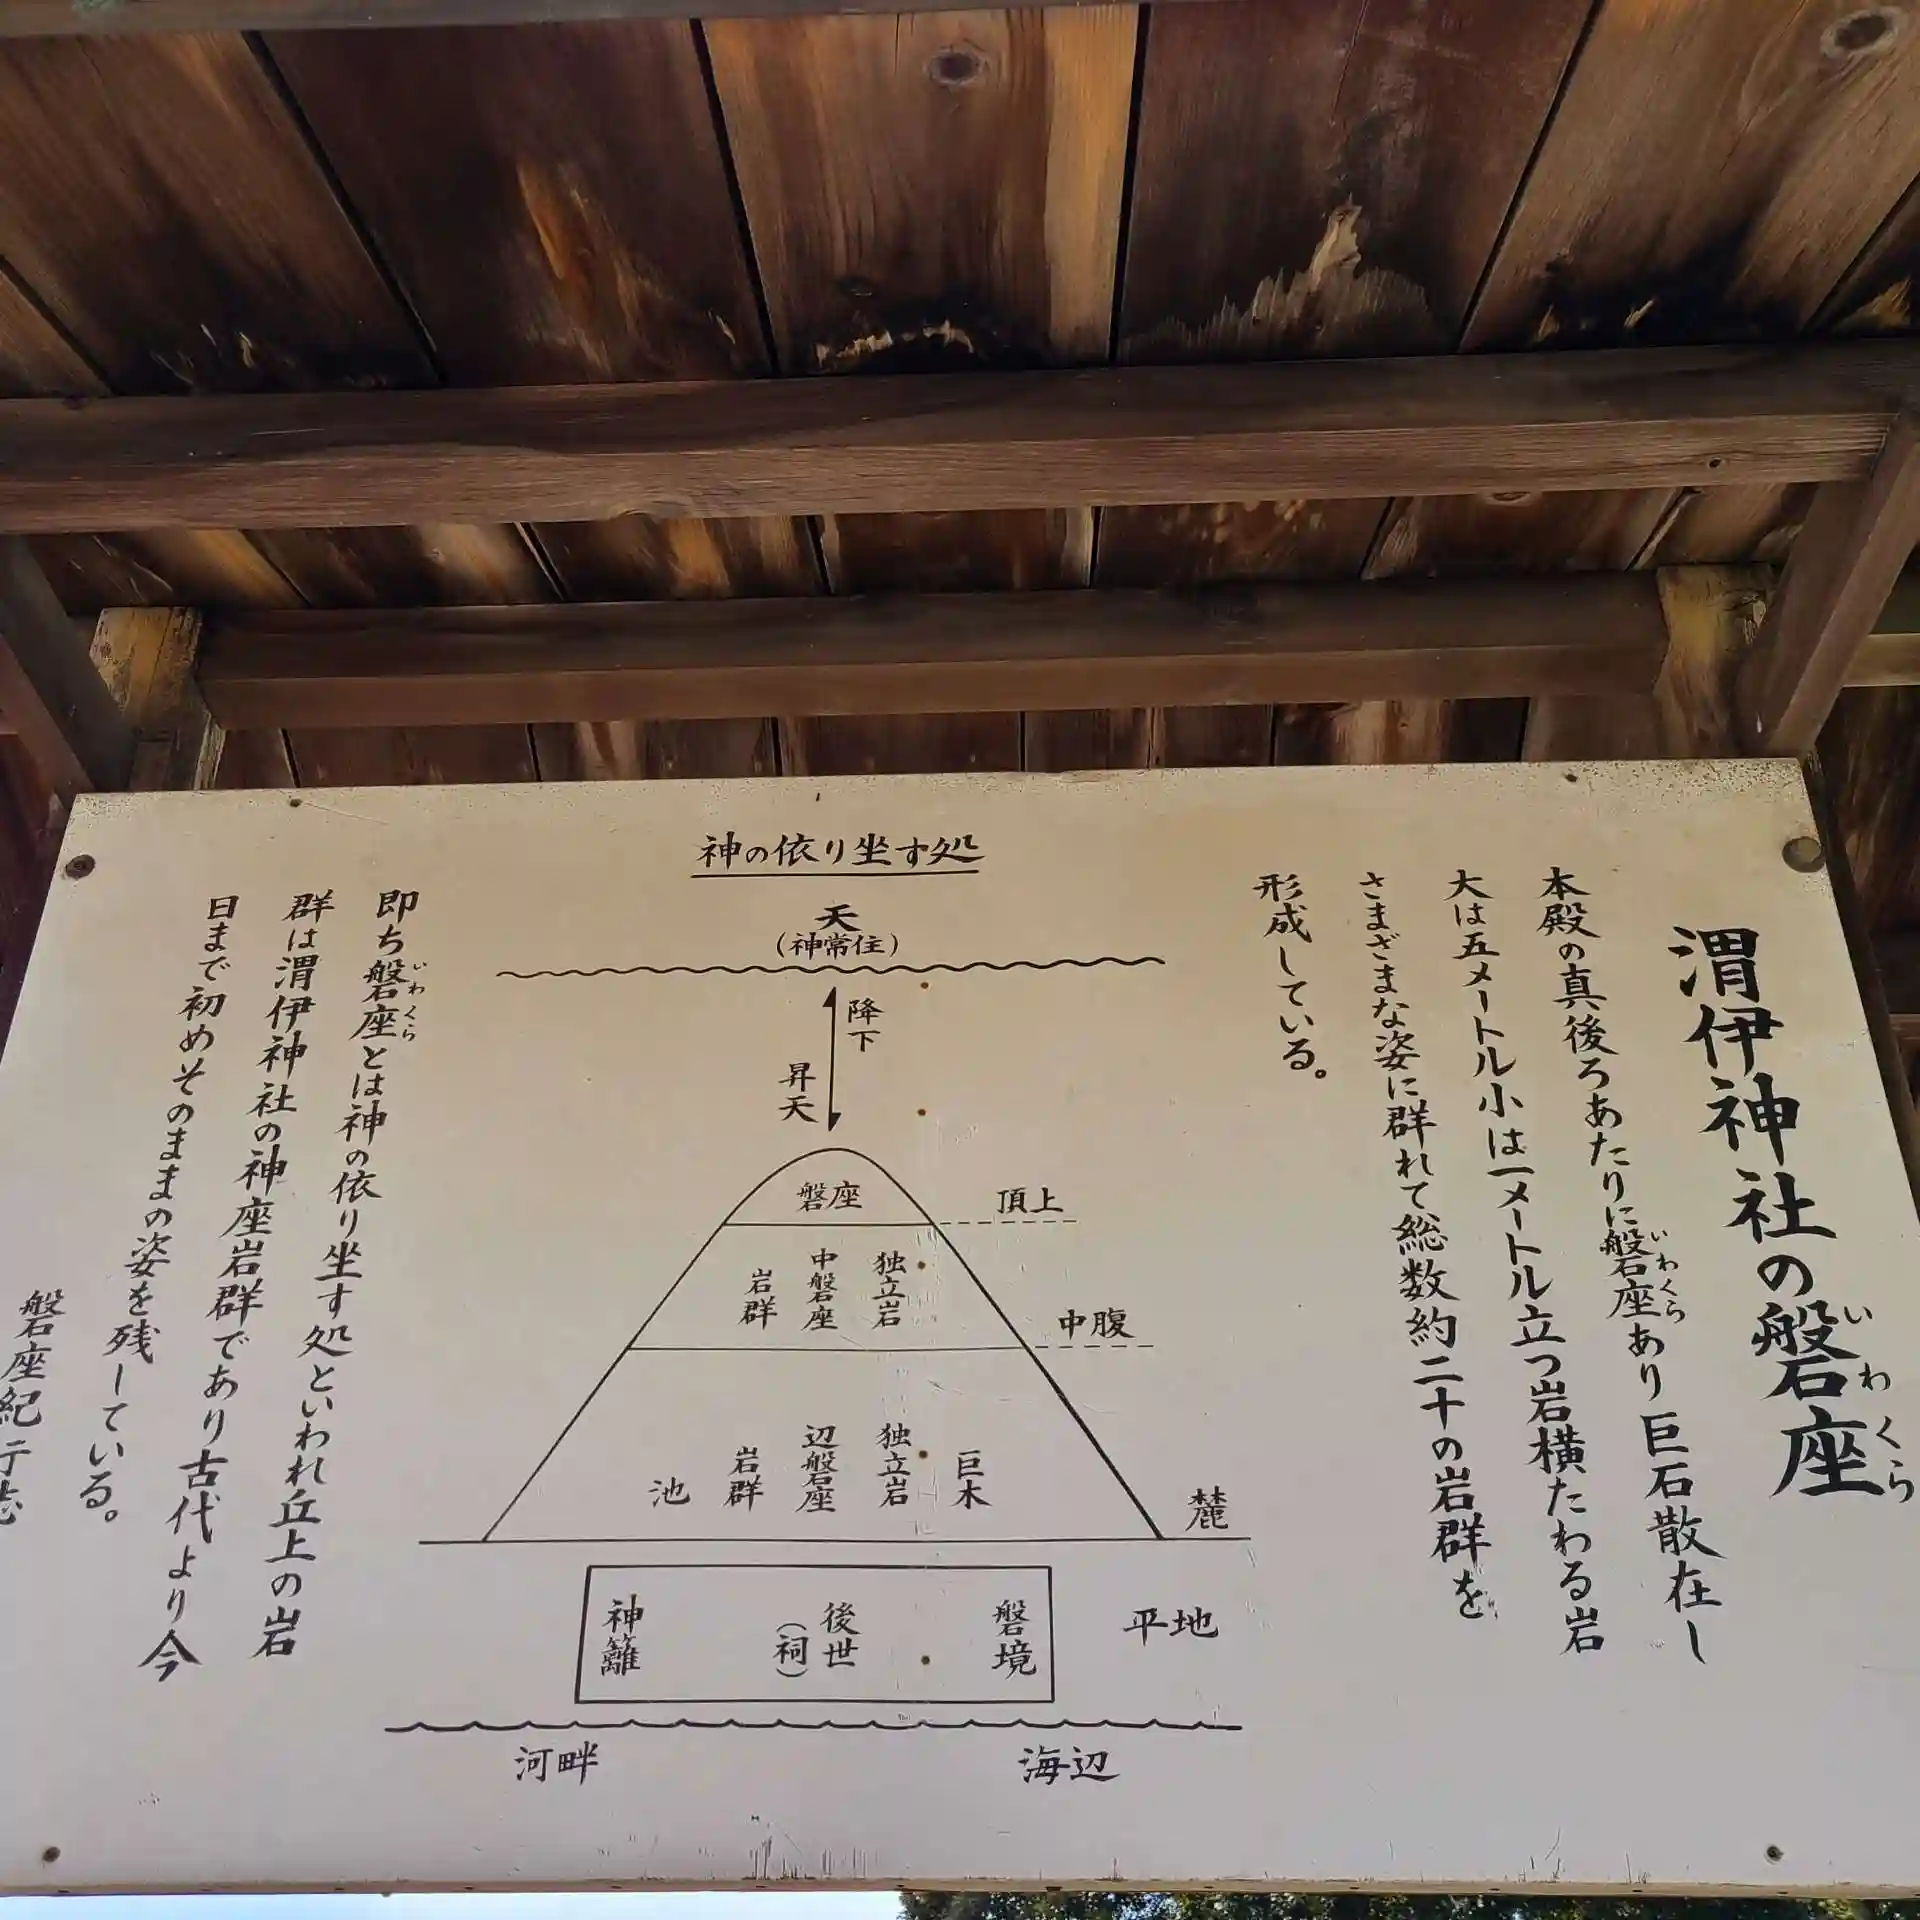 渭伊神社の磐座
いわくら
本殿の真後ろあたりに磐座あり巨石散在し
いわくら
大は五メートル小は一メートル立つ岩横たわる岩
さまざまな姿に群れて総数約二十の岩群を
形成している。
神の依り坐す処
天
(神常住)
降下
昇天
磐座
頂上
独立岩
中磐座
岩群
中腹
巨木
独立岩
辺磐座
岩群
池
麓
磐境
後世
(祠)
神籬
平地
海辺
河畔
即ち磐座とは神の依り坐す処といわれ丘上の岩
いわくら
群は渭伊神社の神座岩群であり古代より今
日まで初めそのままの姿を残している。
磐座紀行